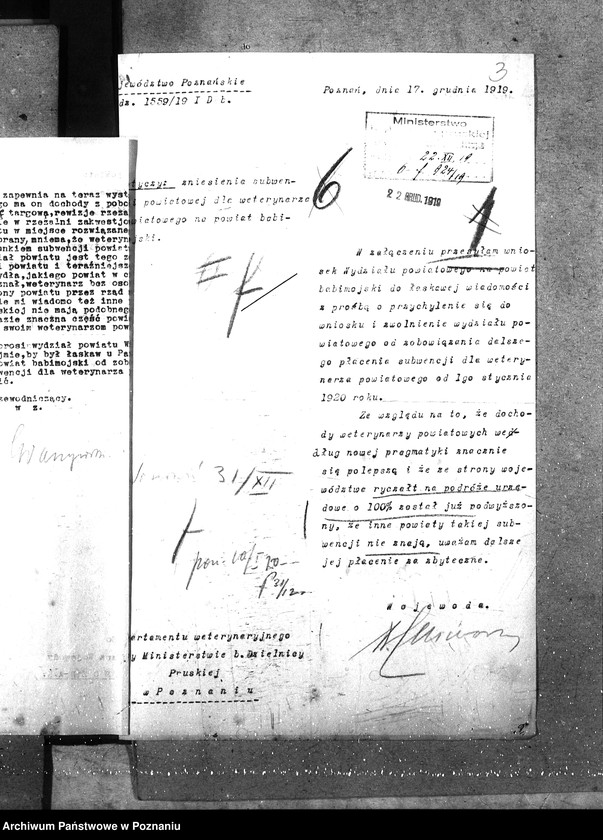 3
jewództwo Poznańskie
dz. 1559/19 I D b.
Poznań, dnie 17. grudnia 1919.
Ministerstwo
22. XII. 19.
924/19
22 GRUD. 1919
tyczy: zniesienia subwen-
i powiatowej dla weterynarza
wiatowego na powiat babi-
jski.
6
1
W załączeniu przesyłam wnio-
sek Wydziału powiatowego na powiat
babimojski do łaskawej wiadomości
z prośbą o przychylenie się do
wniosku i zwolnienie wydziału po-
wiatowego od zobowiązania dalsze-
go płacenia subwencji dla wetery-
narza powiatowego od 1go stycznia
1920 roku.
Ze względu na to, że docho-
dy weterynarzy powiatowych we-
dług nowej pragmatyki znacznie
się polepszą i że ze strony woje-
wództwa ryczałt na podróże urzę-
dowe o 100% został już podwyższo-
ny, że inne powiaty takiej sub-
wencji nie znają, uważam dalsze
jej płacenie za zbyteczne.
Wojewoda.
31/XII
ertamentu weterynaryjnego
y Ministerstwie b. Dzielnicy
Pruskiej
w Poznaniu
zapewnia na teraz wyst
go ma on dochody z pobo
targową, rewizje rzeźa
e w rzeźalni zakwestjo
tu w miejsce rozwiązane
brany, mniema, że weteryn
unkiem subwencji powiat
iał powiatu jest tego z
i powiatu i teraźniejsz
ydła, jakiego powiat w c
znał, weterynarz bez oso
ony powiatu przez rząd
ie mi wiadomo też inne
skiej nie mają podobneg
azie znaczna część powi
swoim weterynarzom pow
prosi wydział powiatu W
jnie, by był łaskaw u Pa
owiat babimojski od zob
wencji dla weterynarza
zewodniczący.
w z.
Archiwum Państwowe w Poznaniu